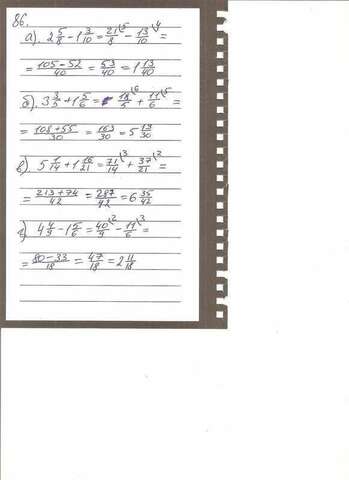 86.
а). 2 5/8 − 1 3/10 = 21/8 \5 − 13/10 \4 =
= 105−52/40 = 53/40 = 1 13/40
б). 3 3/5 + 1 5/6 = 18/5 \6 + 11/6 \5 =
= 108+55/30 = 163/30 = 5 13/30
в). 5 1/14 + 1 16/21 = 71/14 \3 + 37/21 \2 =
= 213+74/42 = 287/42 = 6 35/42
г). 4 4/9 − 1 5/6 = 40/9 \2 − 11/6 \3 =
= 80−33/18 = 47/18 = 2 11/18